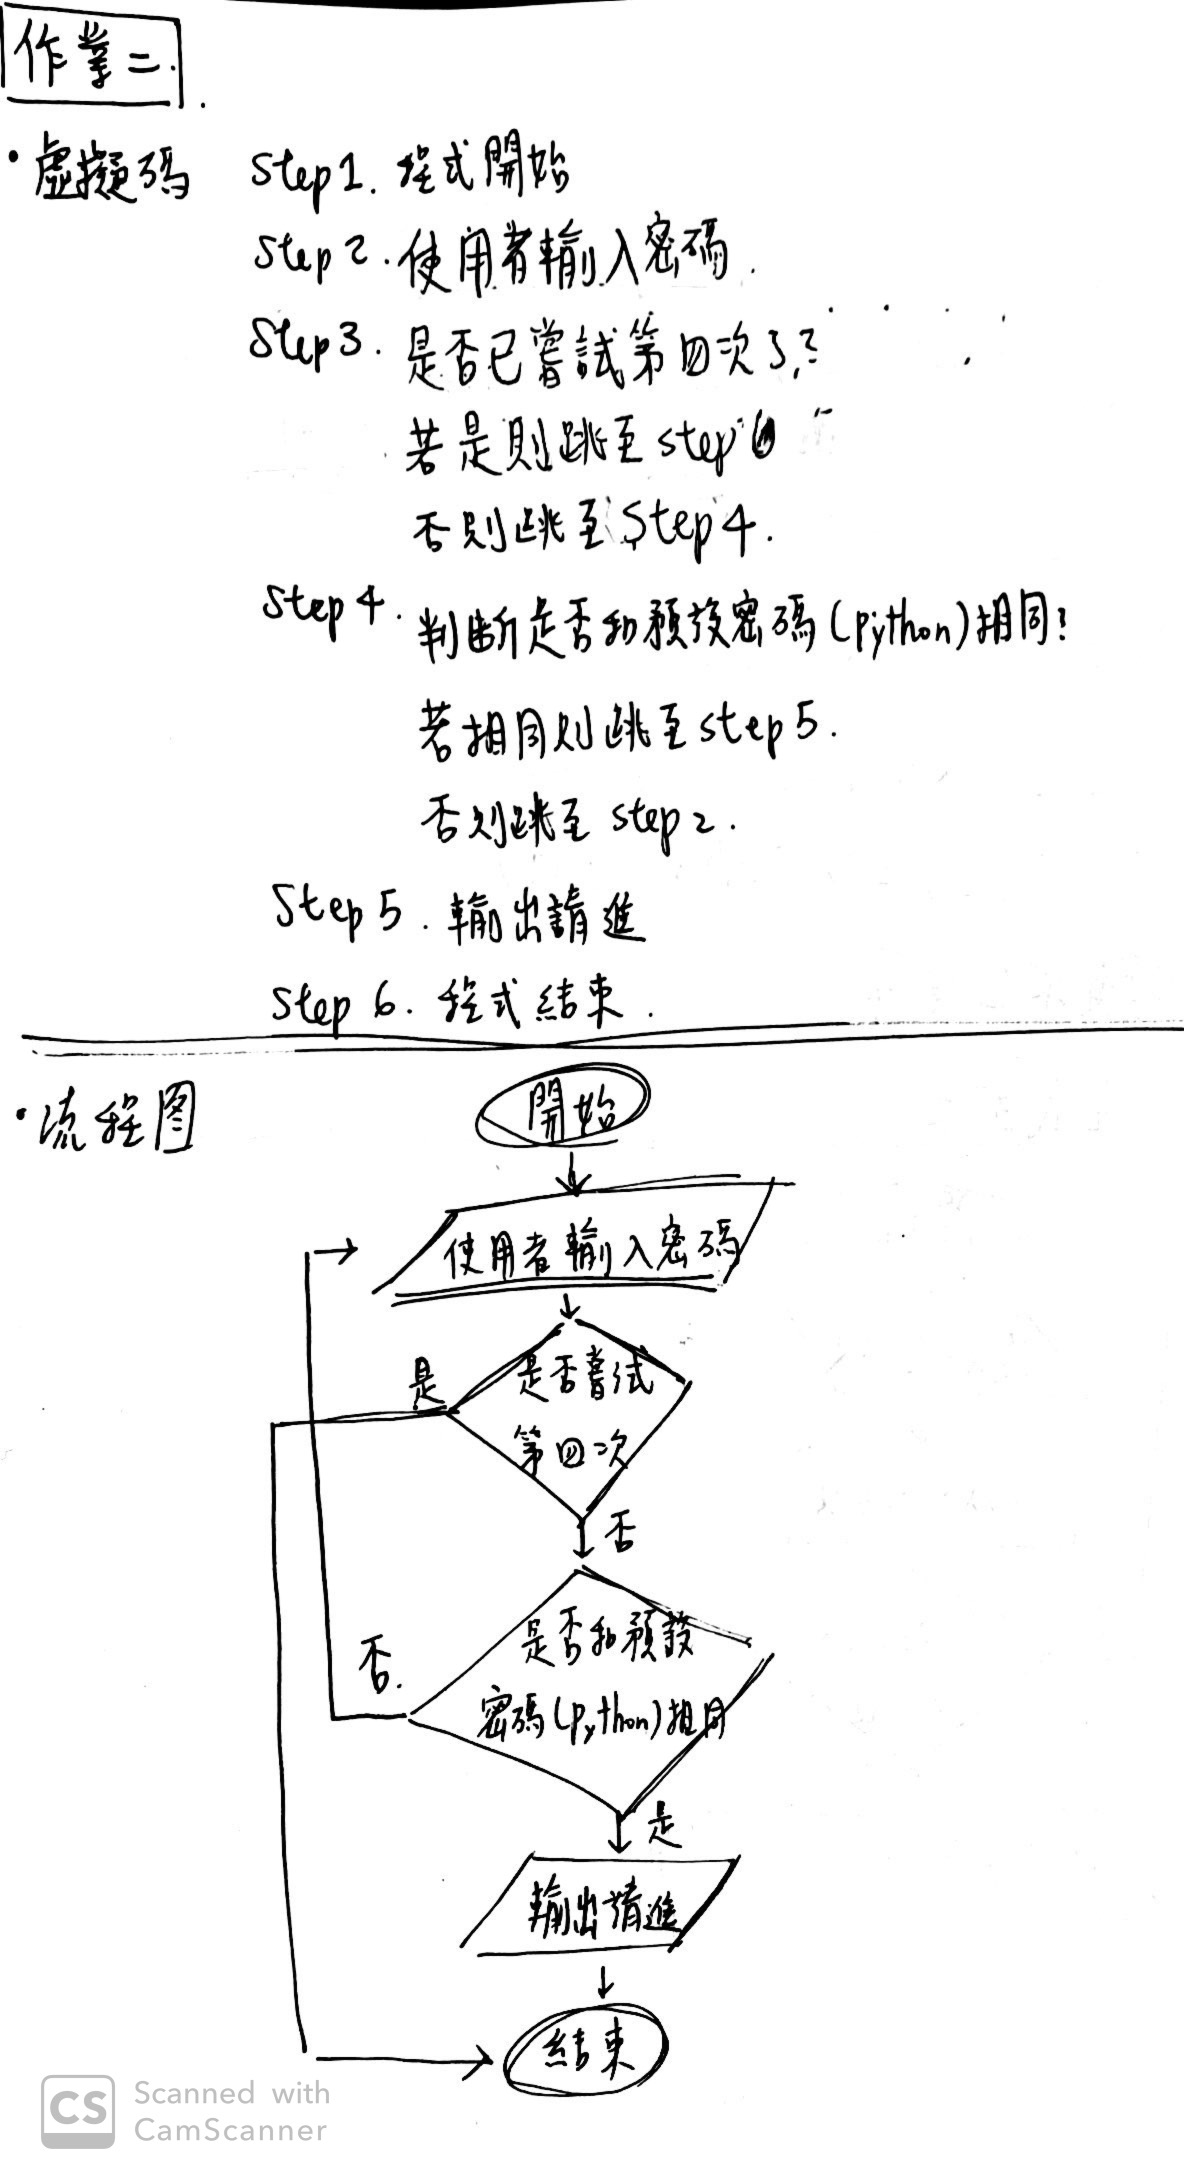 作業二.
・虛擬碼 Step 1. 程式開始
Step 2. 使用者輸入密碼.
Step 3. 是否已嘗試第四次了?
若是則跳至 step 6
否則跳至 Step 4.
Step 4. 判斷是否和預設密碼(python)相同?
若相同則跳至 step 5.
否則跳至 step 2.
Step 5. 輸出請進
Step 6. 程式結束.
・流程图
開始
使用者輸入密碼
是
是否嘗試
第四次
否
是否和預設
否.
密碼(python)相同
是
輸出請進
結束
CS Scanned with
CamScanner